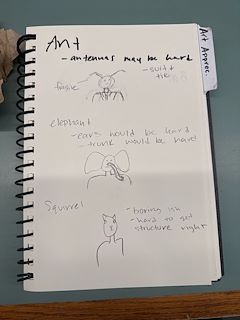 Ant
- antennas may be hard
- suit +
tie
fragile
elephant
- ears would be hard
- trunk would be hard
Squirrel
- boring ish
- hard to get
structure right
Art Apprec.